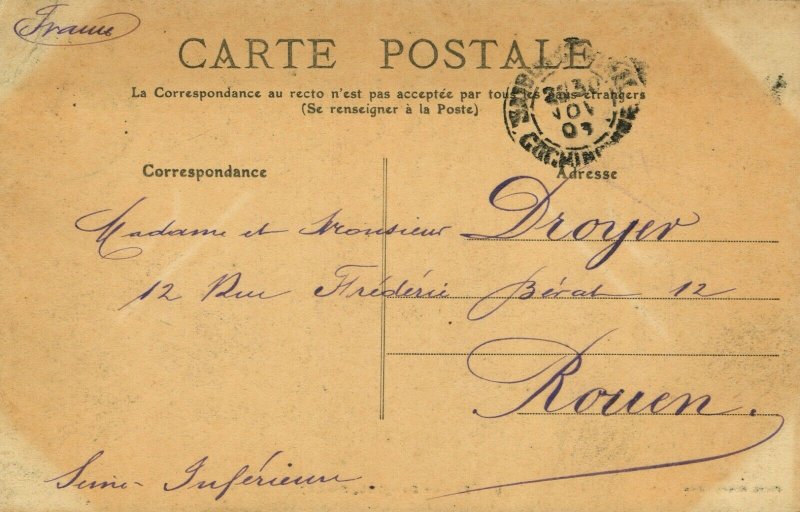 France
CARTE POSTALE
La Correspondance au recto n'est pas acceptée par tous les pays étrangers
(Se renseigner à la Poste)
NOV
03
COCHINCHINE
Correspondance
Adresse
Madame et Monsieur Droyer
12 Rue Frédéric Bérat 12
Rouen.
Seine-Inférieure.